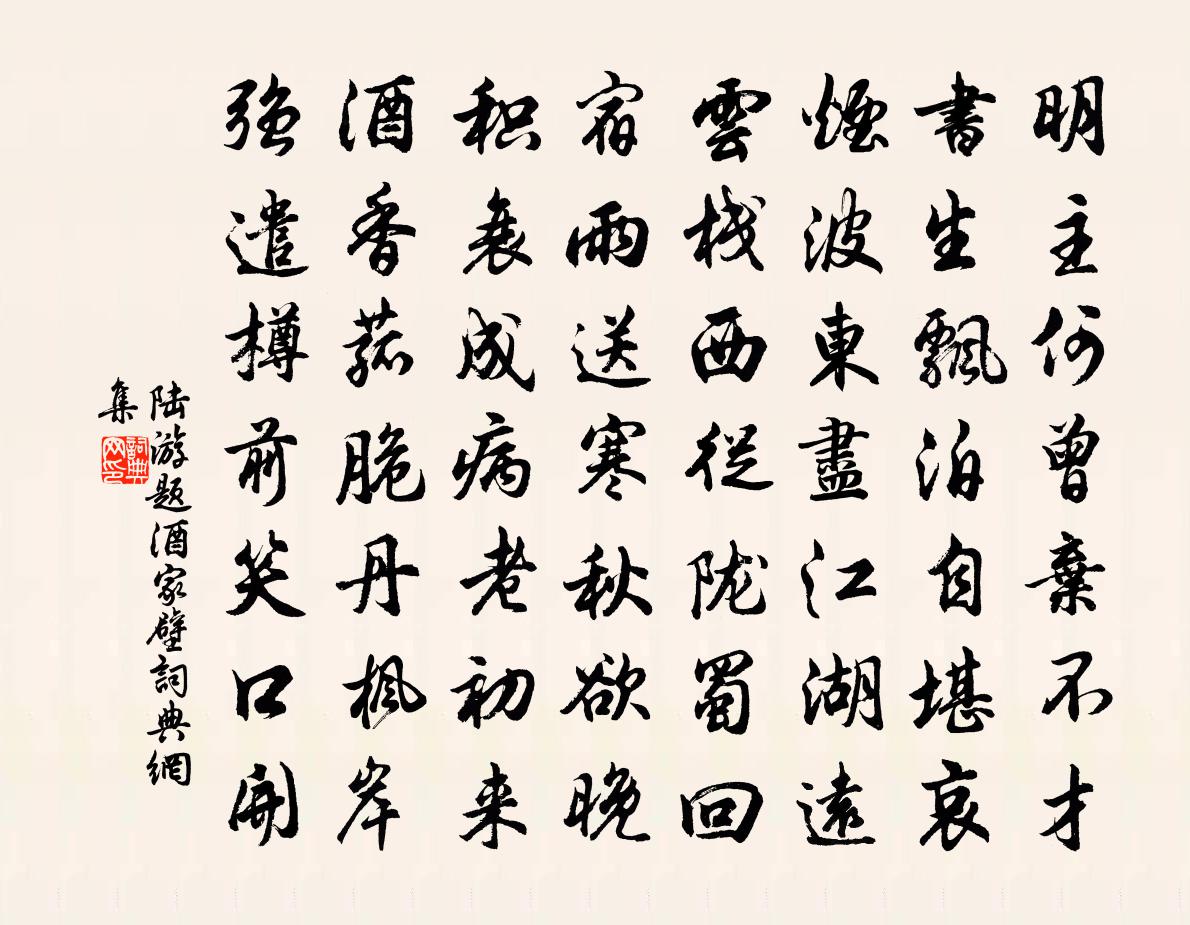 明主何曾棄不才
書生飄泊自堪哀
煙波東盡江湖遠
雲栈西從陇蜀回
宿雨送寒秋欲晚
积衰成病老初来
酒香菰脆丹楓岸
強遣樽前笑口開
陆游题酒家壁詞典網
集
詞典网印